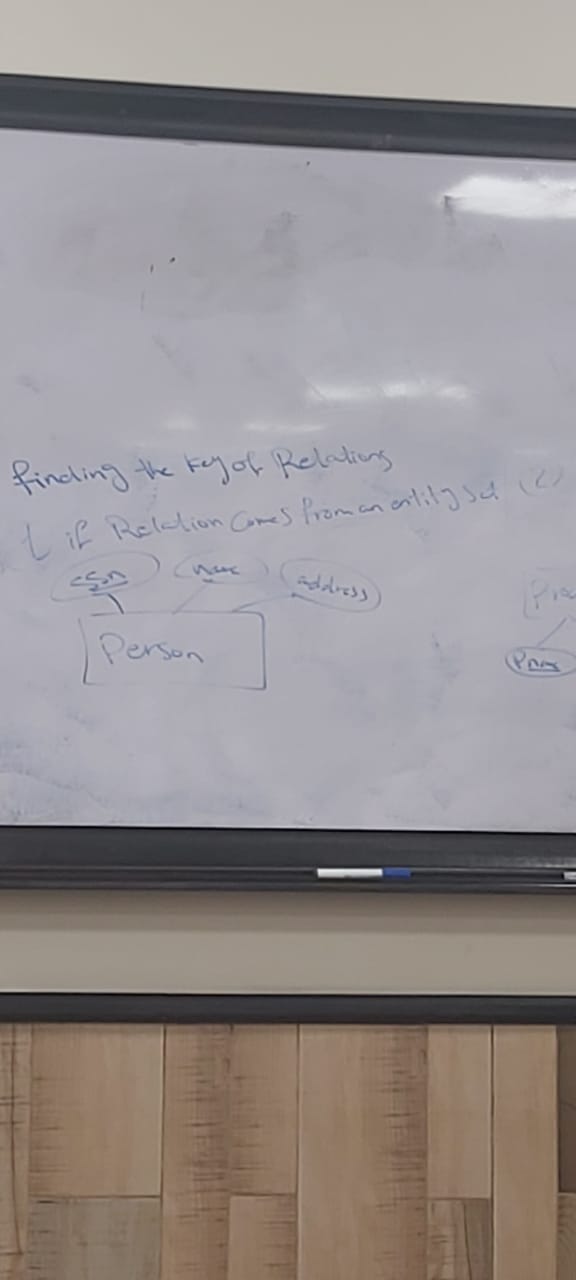 Finding the key of Relations
if Relation comes from an entity set (2)
ssn name address
Person
Pname